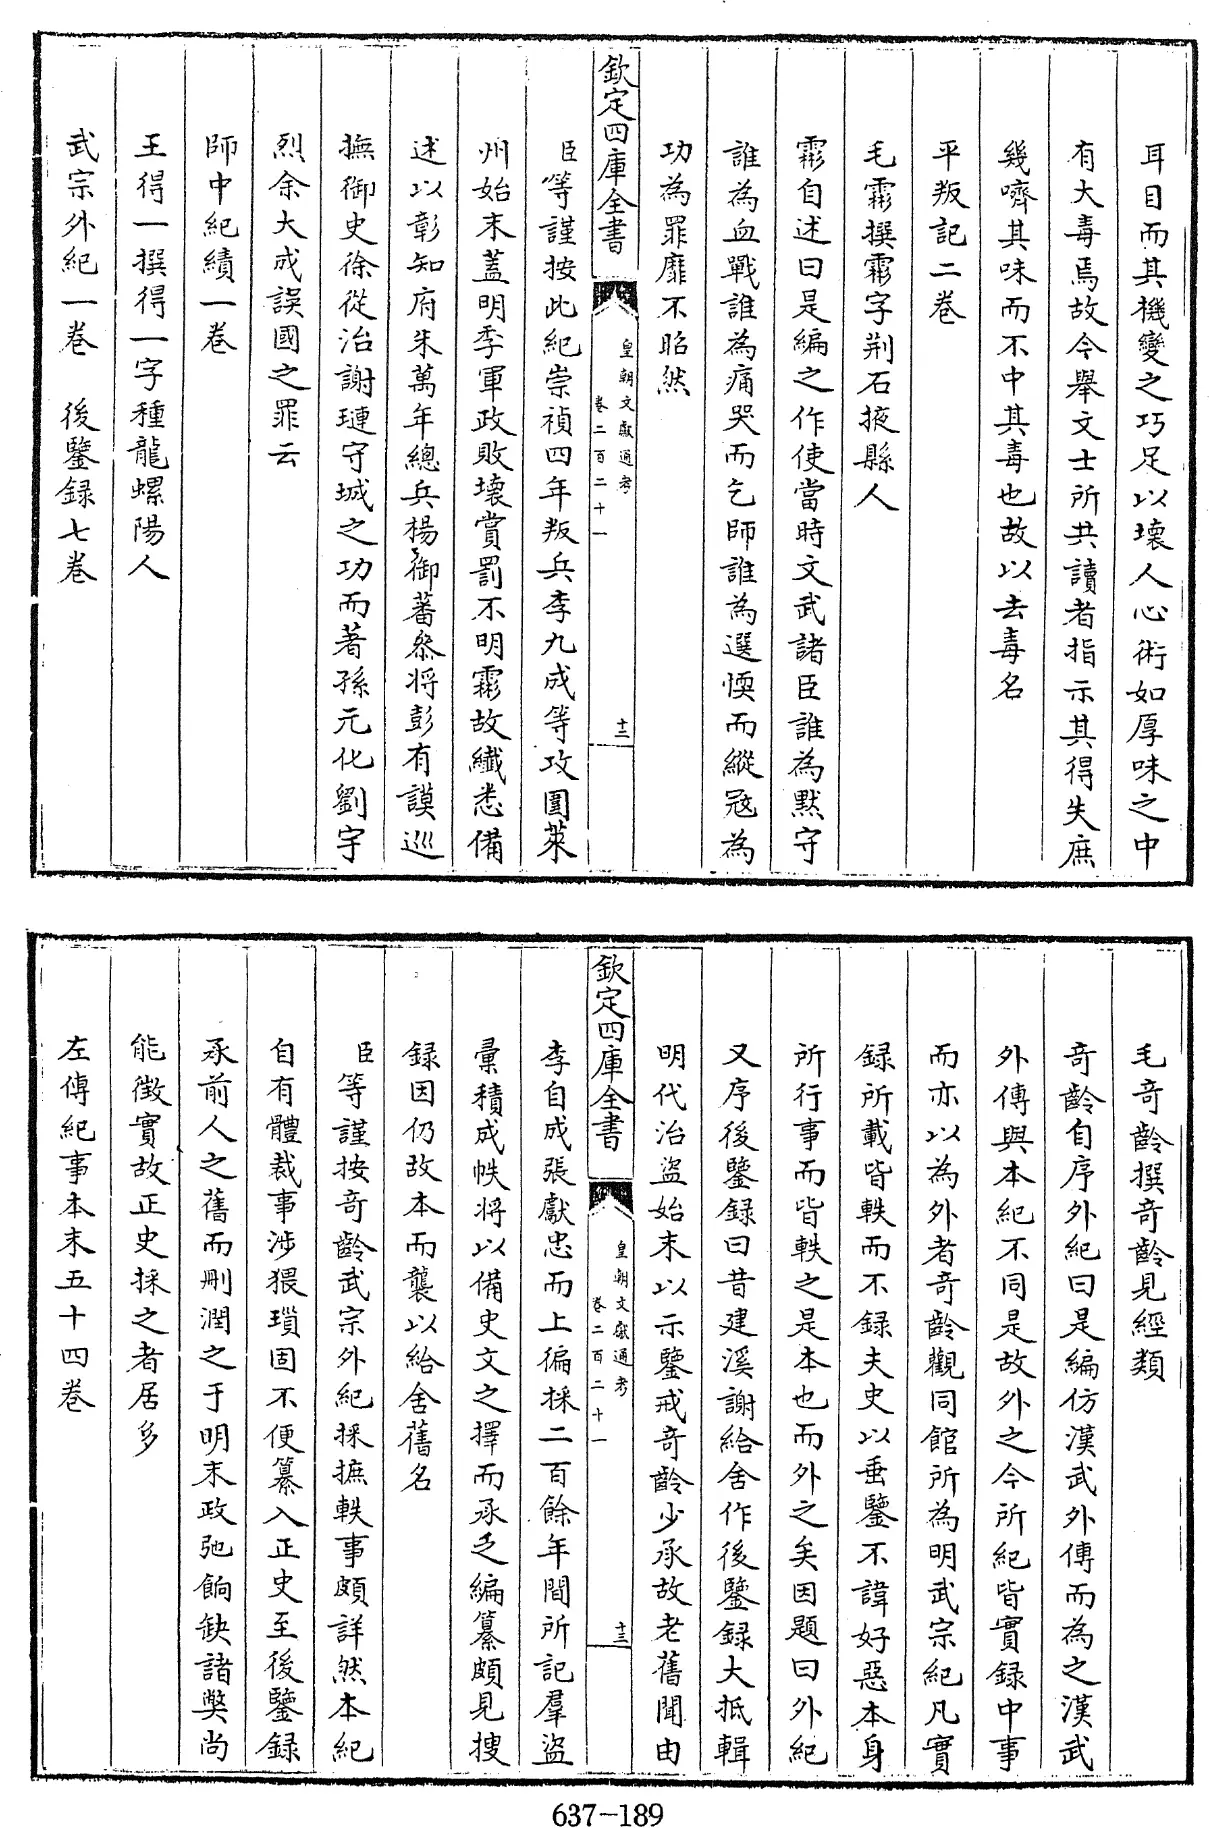 耳目而其機變之巧足以壞人心術如厚味之中
有大毒焉故今舉文士所共讀者指示其得失庶
幾嚌其味而不中其毒也故以去毒名
平叛記二卷
毛霦撰霦字荆石掖縣人
霦自述曰是編之作使當時文武諸臣誰為黙守
誰為血戰誰為痛哭而乞師誰為選愞而縱冦為
功為罪靡不昭然
欽定四庫全書
皇朝文獻通考
卷二百二十一
十二
臣等謹按此紀崇禎四年叛兵李九成等攻圍萊
州始末蓋明季軍政敗壞賞罰不明霦故纎悉備
述以彰知府朱萬年總兵楊御蕃叅将彭有謨巡
撫御史徐從治謝璉守城之功而著孫元化劉宇
烈余大成誤國之罪云
師中紀績一卷
王得一撰得一字種龍螺陽人
武宗外紀一卷　後鑒録七卷
毛奇齡撰奇齡見經類
奇齡自序外紀曰是編仿漢武外傳而為之漢武
外傳與本紀不同是故外之今所紀皆實録中事
而亦以為外者奇齡觀同館所為明武宗紀凡實
録所載皆軼而不録夫史以垂鑒不諱好惡本身
所行事而皆軼之是本也而外之矣因題曰外紀
又序後鑒録曰昔建溪謝給舍作後鑒録大抵輯
明代治盗始末以示鑒戒奇齡少承故老舊聞由
欽定四庫全書
皇朝文獻通考
卷二百二十一
十三
李自成張獻忠而上徧採二百餘年間所記羣盗
彚積成帙将以備史文之擇而承乏編纂頗見搜
録因仍故本而襲以給舍舊名
臣等謹按奇齡武宗外紀採摭軼事頗詳然本紀
自有體裁事涉猥瑣固不便纂入正史至後鑒録
承前人之舊而刪潤之于明末政弛餉缺諸獘尚
能徵實故正史採之者居多
左傳紀事本末五十四卷
637-189